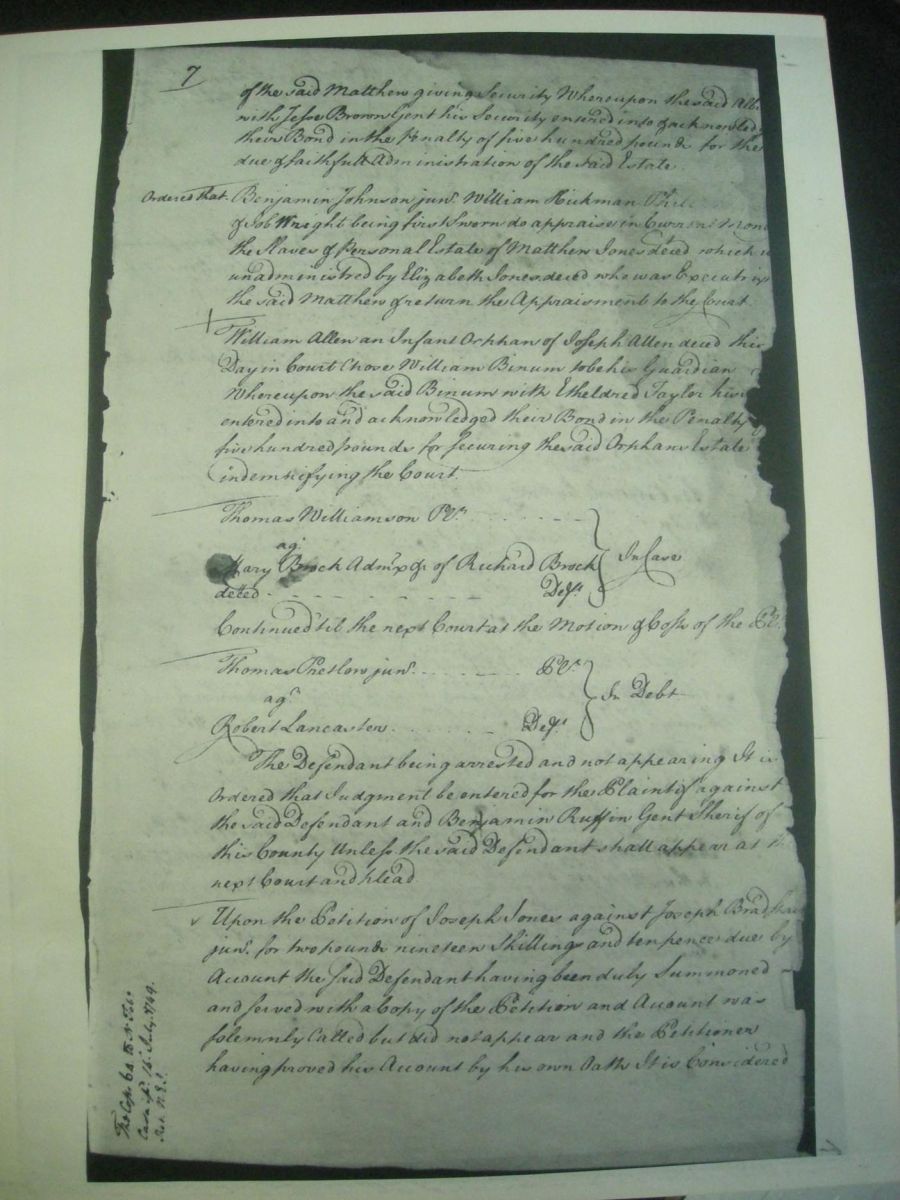 7
of the said Matthew giving Security Whereupon the said
with Jesse Brown Gent his Security entered into & acknowledg
their Bond in the Penalty of five hundred pounds for the
due & faithfull Administration of the said Estate
Ordered that Benjamin Johnson junr. William Hickman
& Job Wright being first Sworn do appraise in Current Mone
the Slaves & Personal Estate of Matthew Jones deced which
unadministred by Elizabeth Jones deced who was Executrix
the said Matthew & return the Appraisment to the Court
William Allen an Infant Orphan of Joseph Allen deced this
Day in Court Chose William Binum to be his Guardian
Whereupon the said Binum with Etheldred Taylor his
entered into and acknowledged their Bond in the Penalty
five hundred pounds for securing the said Orphans Estate
indemnifying the Court
Thomas Williamson Plt.
agt.
Mary Brock Admrx &c of Richard Brock
deced Deft.
In Case
Continued til the next Court at the Motion & Costs of the Plt.
Thomas Pretlow junr. Plt.
agt.
In Debt
Robert Lancaster Deft.
The Defendant being arrested and not appearing It is
Ordered that Judgment be entered for the Plaintif against
the said Defendant and Benjamin Ruffin Gent Sherif of
this County Unless the said Defendant shall appear at th
next Court and plead
Upon the Petition of Joseph Jones against Joseph Bradshaw
junr. for two pounds nineteen Shillings and ten pence due by
Account the said Defendant having been duly Summoned
and served with a Copy of the Petition and Account was
solemnly Called but did not appear and the Petitioner
having proved his Account by his own Oath It is Considered